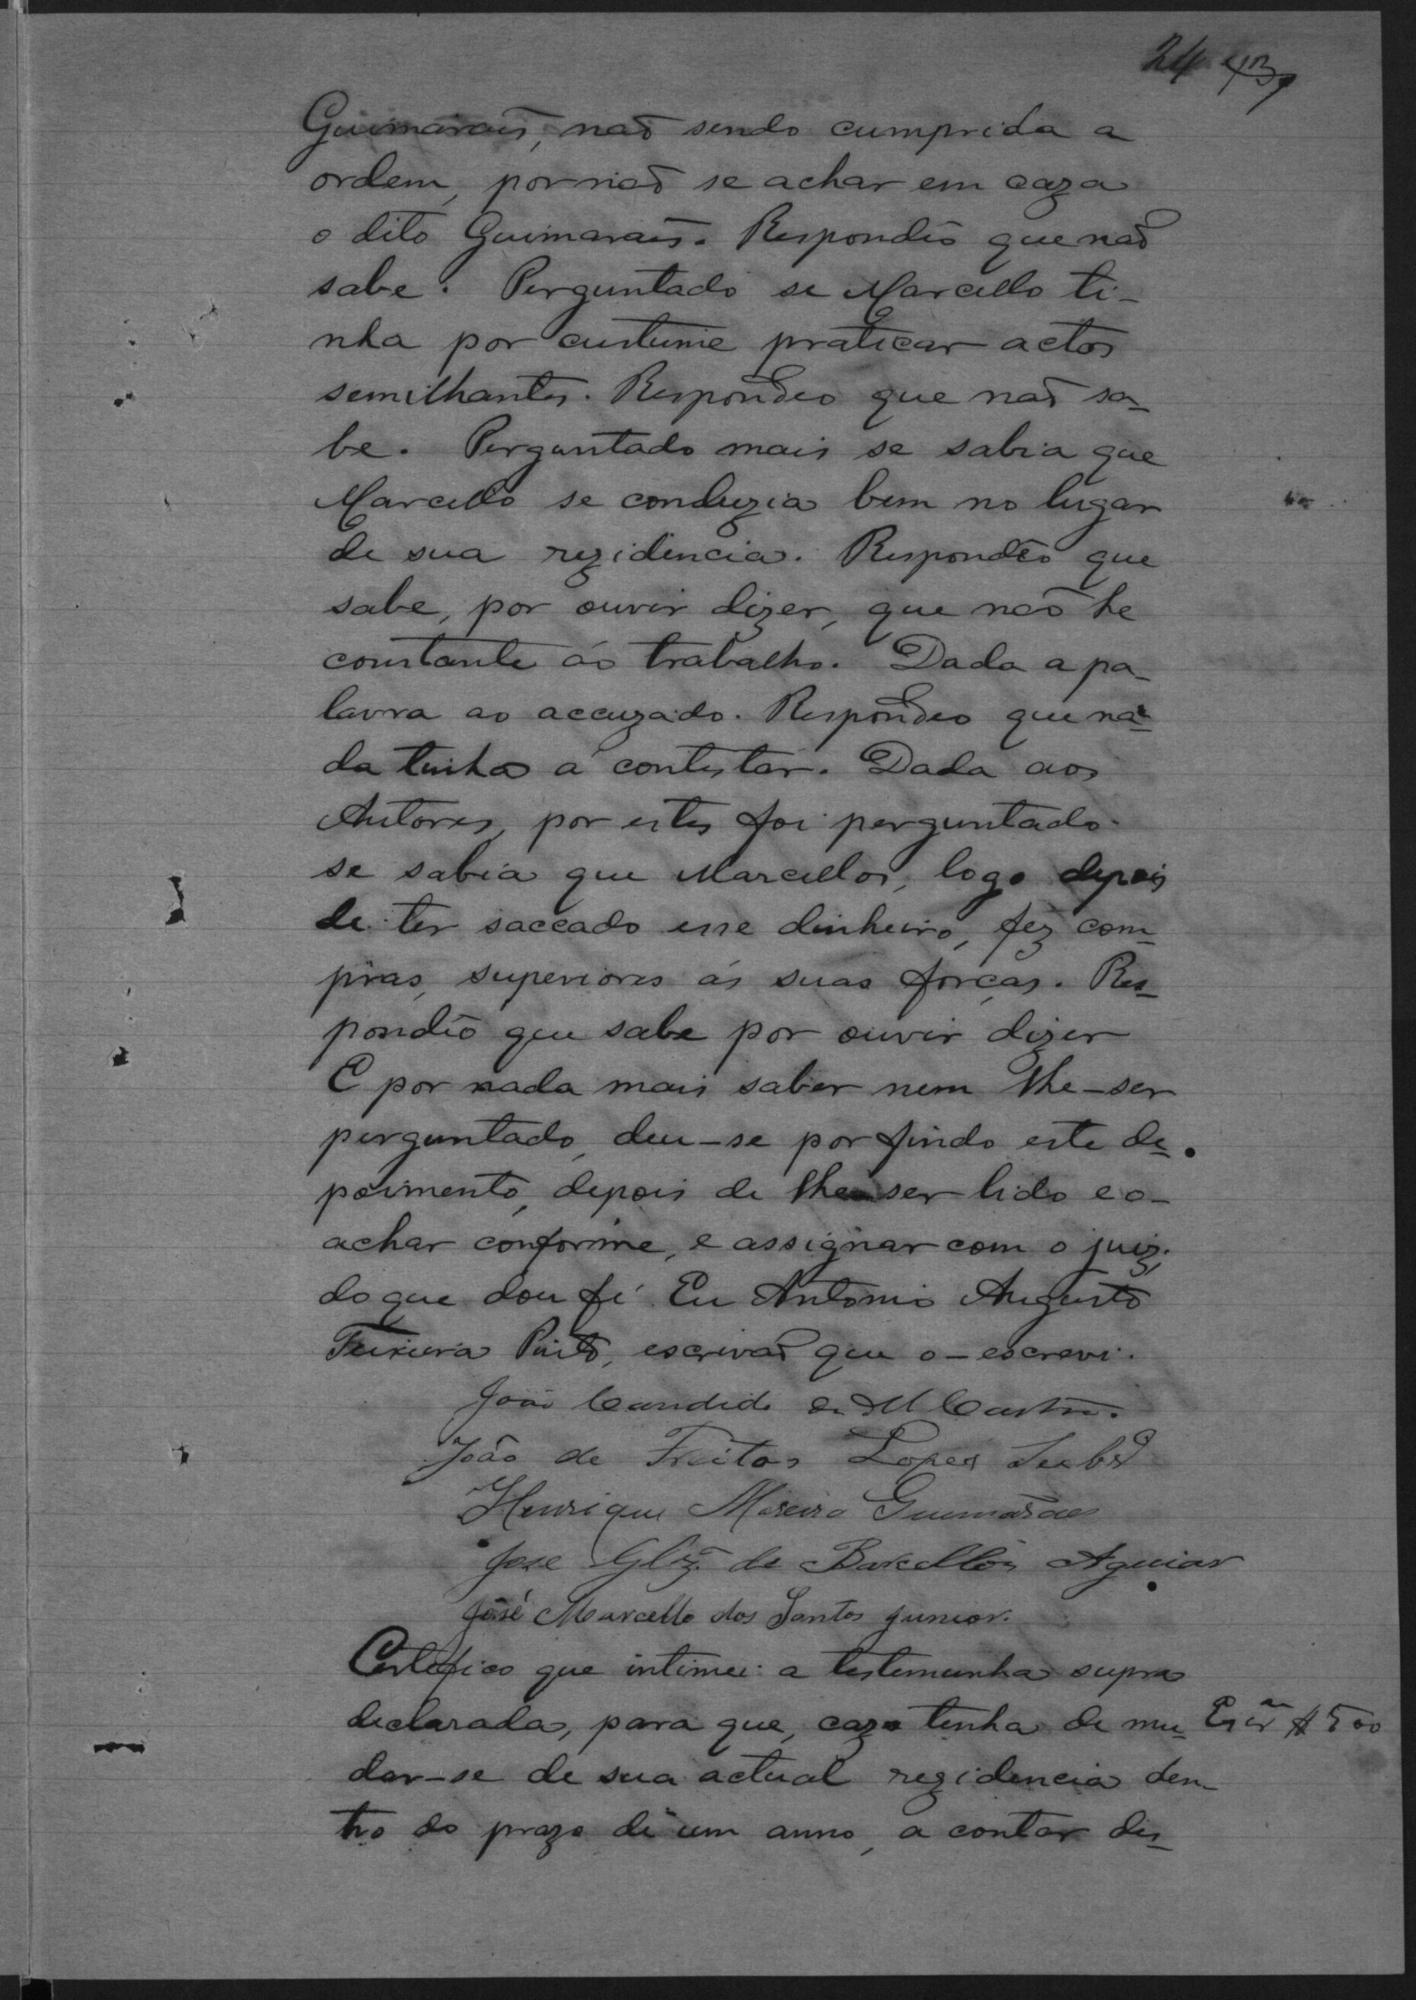 24 43
Guimarais, naõ sendo cumprida a
ordem, por naõ se achar em caza
o dito Guimarais. Respondeo que naõ
sabe. Perguntado se Marcello ti-
nha por custume praticar actos
semilhantes. Respondeo que naõ sa-
be. Perguntado mais se sabia que
Marcello se conduzia bem no lugar
de sua rezidencia. Respondeo que
sabe, por ouvir dizer, que não he
constante áo trabalho. Dada a pa-
lavra ao accuzado. Respondeo que na-
da tinha a contestar. Dada aos
Autores, por estes foi perguntado
se sabia que Marcellos, logo depois
de ter saccado esse dinheiro, fez com-
pras, superiores ás suas forças. Res-
pondeo que sabe por ouvir dizer
E por nada mais saber nem lhe-ser
perguntado, deu-se por findo este de-
poimento, depois de lhe ser lido e o-
achar conforme, e assignar com o juiz,
do que dou fé. Eu Antonio Augusto
Teixeira Pinto, escrivaõ que o-escrevi.
João Candido de M Castro.
João de Freitas Lopes
Henrique Moreira Guimarães
Jose Glz. de Barcellos Aguiar
José Marcello dos Santos Junior.
Certefico que intimei a testemunha supra
declarada, para que, cazo tenha de mu-
dar-se de sua actual rezidencia den-
tro do prazo de um anno, a contar des-
$500